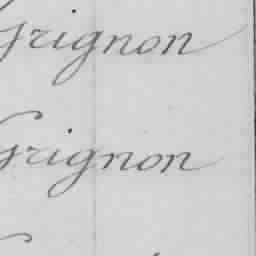 Grignon
Grignon